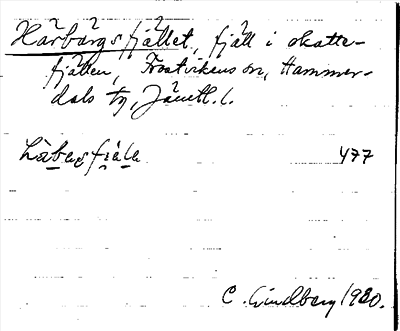 Hårbärgsfjället, fjäll i skatte-
fjällen, Frostvikens sn, Hammer-
dals tg, Jämtl. l.
477
C. Lindberg 1980.